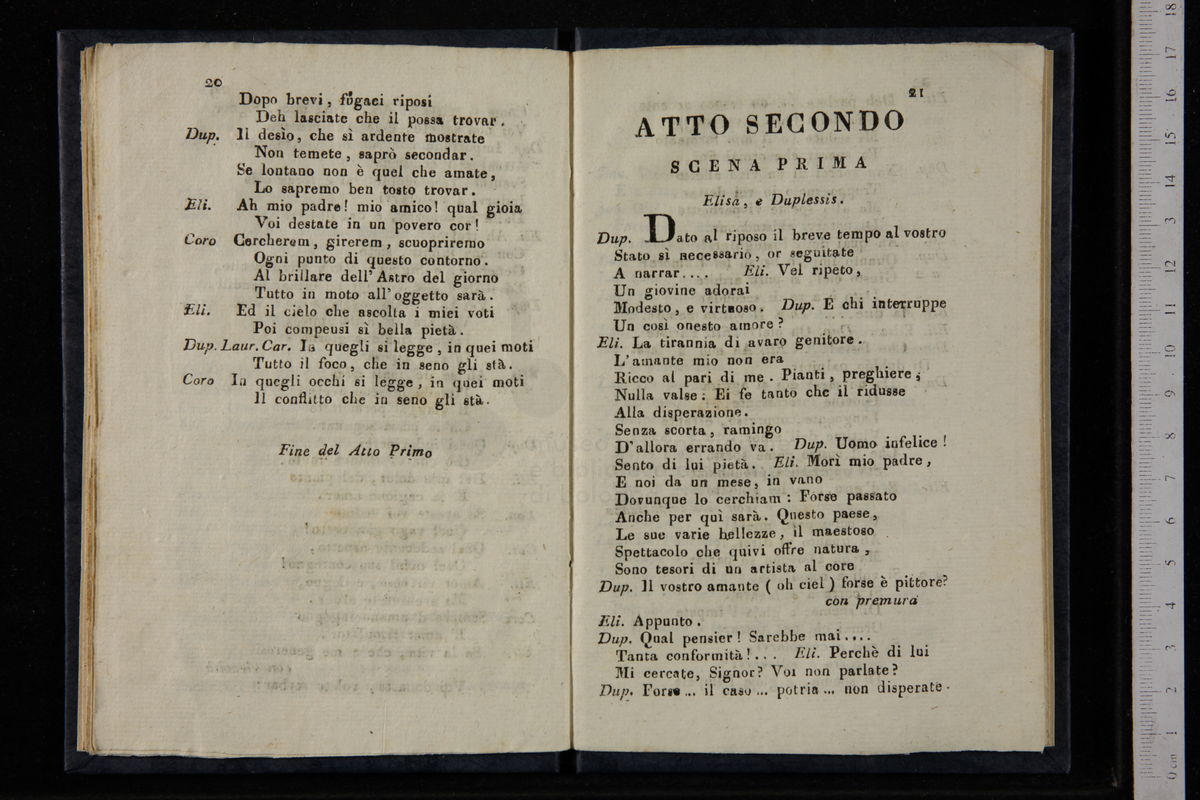 20
Dopo brevi, fugaci riposi
Deh lasciate che il possa trovar.
Dup. Il desìo, che sì ardente mostrate
Non temete, saprò secondar.
Se lontano non è quel che amate,
Lo sapremo ben tosto trovar.
Eli. Ah mio padre! mio amico! qual gioia
Voi destate in un povero cor!
Coro Cercherem, girerem, scuopriremo
Ogni punto di questo contorno.
Al brillare dell' Astro del giorno
Tutto in moto all' oggetto sarà.
Eli. Ed il cielo che ascolta i miei voti
Poi compensi sì bella pietà.
Dup. Laur. Car. In quegli si legge, in quei moti
Tutto il foco, che in seno gli stà.
Coro In quegli occhi si legge, in quei moti
Il conflitto che in seno gli stà.
Fine del Atto Primo
21
ATTO SECONDO
SCENA PRIMA
Elisa, e Duplessis.
Dup. Dato al riposo il breve tempo al vostro
Stato sì necessario, or seguitate
A narrar.... Eli. Vel ripeto,
Un giovine adorai
Modesto, e virtuoso. Dup. E chi interruppe
Un così onesto amore?
Eli. La tirannia di avaro genitore.
L'amante mio non era
Ricco al pari di me. Pianti, preghiere;
Nulla valse: Ei fe tanto che il ridusse
Alla disperazione.
Senza scorta, ramingo
D'allora errando va. Dup. Uomo infelice!
Sento di lui pietà. Eli. Morì mio padre,
E noi da un mese, in vano
Dovunque lo cerchiam: Forse passato
Anche per quì sarà. Questo paese,
Le sue varie bellezze, il maestoso
Spettacolo che quivi offre natura,
Sono tesori di un artista al core
Dup. Il vostro amante (oh ciel) forse è pittore?
con premura
Eli. Appunto.
Dup. Qual pensier! Sarebbe mai....
Tanta conformità!... Eli. Perchè di lui
Mi cercate, Signor? Voi non parlate?
Dup. Forse... il caso... potria... non disperate.
0 cm 1 2 3 4 5 6 7 8 9 10 11 12 13 14 15 16 17 18